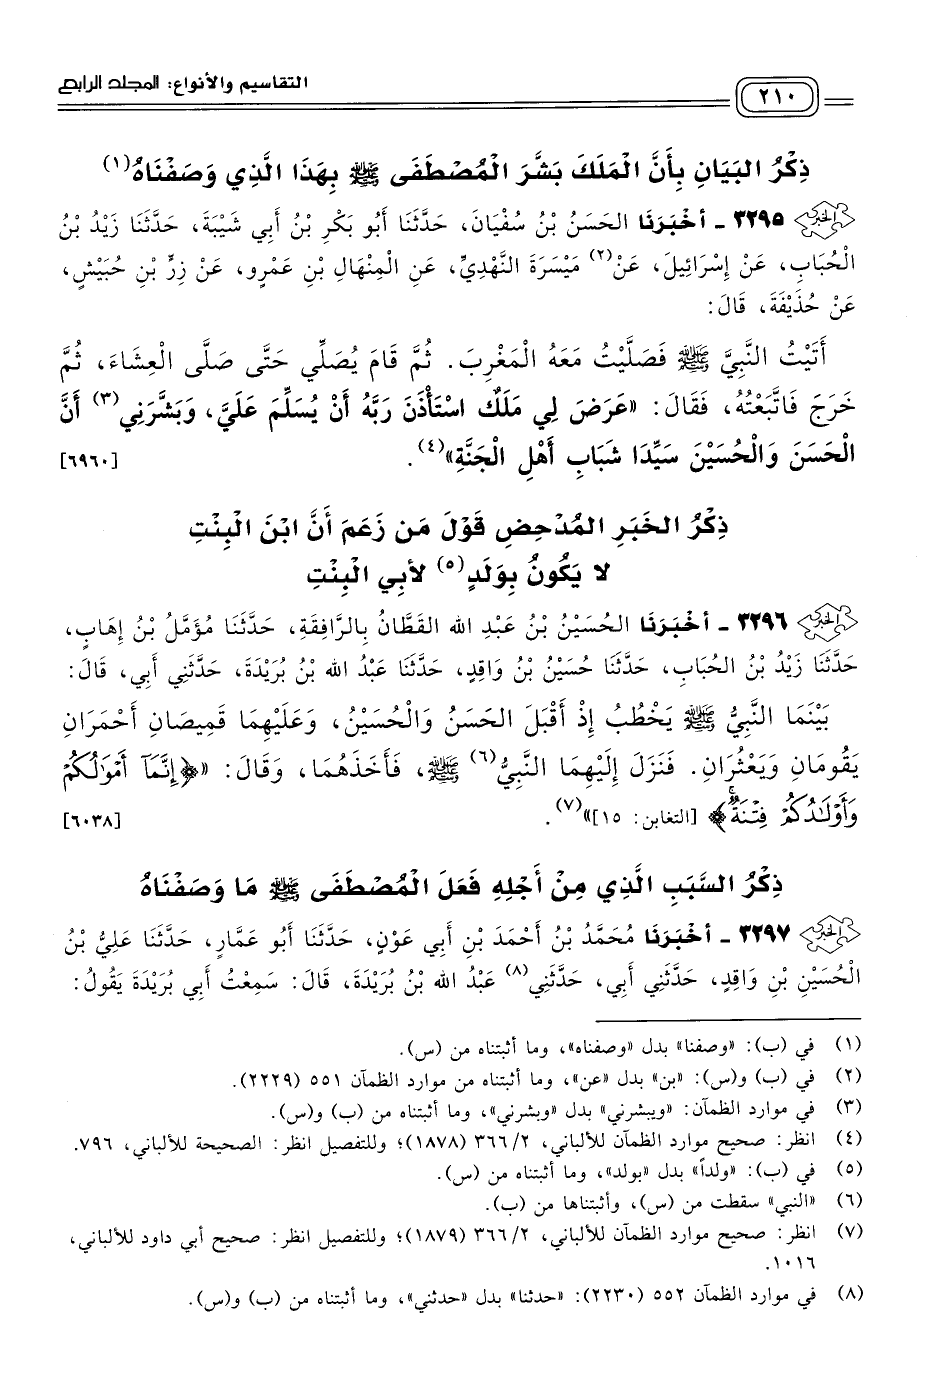 التقاسيم والأنواع: المجلد الرابع
٢١٠
ذِكْرُ البَيَانِ بِأَنَّ الْمَلَكَ بَشَّرَ الْمُصْطَفَى ﷺ بِهَذَا الَّذِي وَصَفْنَاهُ(١)
٣٢٩٥ ـ أخْبَرَنَا الحَسَنُ بْنُ سُفْيَانَ، حَدَّثَنَا أَبُو بَكْرِ بْنُ أَبِي شَيْبَةَ، حَدَّثَنَا زَيْدُ بْنُ
الْحُبَابِ، عَنْ إِسْرَائِيلَ، عَنْ(٢) مَيْسَرَةَ النَّهْدِيِّ، عَنِ الْمِنْهَالِ بْنِ عَمْرٍو، عَنْ زِرِّ بْنِ حُبَيْشٍ،
عَنْ حُذَيْفَةَ، قَالَ:
أَتَيْتُ النَّبِيَّ ﷺ فَصَلَّيْتُ مَعَهُ الْمَغْرِبَ. ثُمَّ قَامَ يُصَلِّي حَتَّى صَلَّى الْعِشَاءَ، ثُمَّ
خَرَجَ فَاتَّبَعْتُهُ، فَقَالَ: «عَرَضَ لِي مَلَكٌ اسْتَأْذَنَ رَبَّهُ أَنْ يُسَلِّمَ عَلَيَّ، وَبَشَّرَنِي(٣) أَنَّ
الْحَسَنَ وَالْحُسَيْنَ سَيِّدَا شَبَابِ أَهْلِ الْجَنَّةِ»(٤). [٦٩٦٠]
ذِكْرُ الخَبَرِ المُدْحِضِ قَوْلَ مَن زَعَمَ أَنَّ ابْنَ الْبِنْتِ
لا يَكُونُ بِوَلَدٍ(٥) لأبِي الْبِنْتِ
٣٢٩٦ ـ أخْبَرَنَا الحُسَيْنُ بْنُ عَبْدِ الله القَطَّانُ بِالرَّافِقَةِ، حَدَّثَنَا مُؤَمَّلُ بْنُ إِهَابٍ،
حَدَّثَنَا زَيْدُ بْنُ الحُبَابِ، حَدَّثَنَا حُسَيْنُ بْنُ وَاقِدٍ، حَدَّثَنَا عَبْدُ الله بْنُ بُرَيْدَةَ، حَدَّثَنِي أَبِي، قَالَ:
بَيْنَمَا النَّبِيُّ ﷺ يَخْطُبُ إِذْ أَقْبَلَ الحَسَنُ وَالْحُسَيْنُ، وَعَلَيْهِمَا قَمِيصَانِ أَحْمَرَانِ
يَقُومَانِ وَيَعْثُرَانِ. فَنَزَلَ إِلَيْهِمَا النَّبِيُّ(٦) ﷺ، فَأَخَذَهُمَا، وَقَالَ: «﴿إِنَّمَآ أَمْوَٰلُكُمْ
وَأَوْلَٰدُكُمْ فِتْنَةٌ﴾ [التغابن: ١٥]»(٧). [٦٠٣٨]
ذِكْرُ السَّبَبِ الَّذِي مِنْ أَجْلِهِ فَعَلَ الْمُصْطَفَى ﷺ مَا وَصَفْنَاهُ
٣٢٩٧ ـ أخْبَرَنَا مُحَمَّدُ بْنُ أَحْمَدَ بْنِ أَبِي عَوْنٍ، حَدَّثَنَا أَبُو عَمَّارٍ، حَدَّثَنَا عَلِيُّ بْنُ
الْحُسَيْنِ بْنِ وَاقِدٍ، حَدَّثَنِي أَبِي، حَدَّثَنِي(٨) عَبْدُ الله بْنُ بُرَيْدَةَ، قَالَ: سَمِعْتُ أَبِي بُرَيْدَةَ يَقُولُ:
(١) في (ب): «وصفنا» بدل «وصفناه»، وما أثبتناه من (س).
(٢) في (ب) و(س): «بن» بدل «عن»، وما أثبتناه من موارد الظمآن ٥٥١ (٢٢٢٩).
(٣) في موارد الظمآن: «ويبشرني» بدل «وبشرني»، وما أثبتناه من (ب) و(س).
(٤) انظر: صحيح موارد الظمآن للألباني، ٣٦٦/٢ (١٨٧٨)؛ وللتفصيل انظر: الصحيحة للألباني، ٧٩٦.
(٥) في (ب): «ولداً» بدل «بولد»، وما أثبتناه من (س).
(٦) «النبي» سقطت من (س)، وأثبتناها من (ب).
(٧) انظر: صحيح موارد الظمآن للألباني، ٣٦٦/٢ (١٨٧٩)؛ وللتفصيل انظر: صحيح أبي داود للألباني،
١٠١٦.
(٨) في موارد الظمآن ٥٥٢ (٢٢٣٠): «حدثنا» بدل «حدثني»، وما أثبتناه من (ب) و(س).